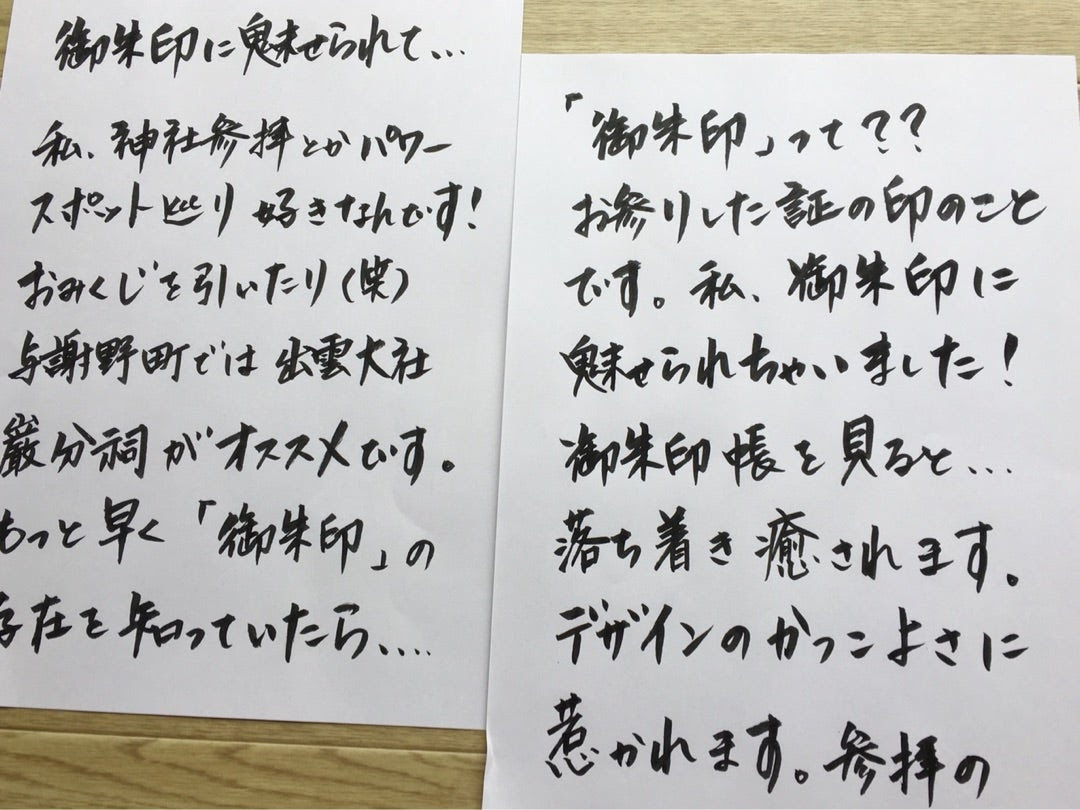 御朱印に魅せられて...
私、神社参拝とかパワー
スポット巡り好きなんです!
おみくじを引いたり(笑)
与謝野町では出雲大社
巌分祠がオススメです。
もっと早く「御朱印」の
存在を知っていたら....
「御朱印」って??
お参りした証の印のこと
です。私、御朱印に
魅せられちゃいました!
御朱印帳を見ると...
落ち着き癒されます。
デザインのかっこよさに
惹かれます。参拝の